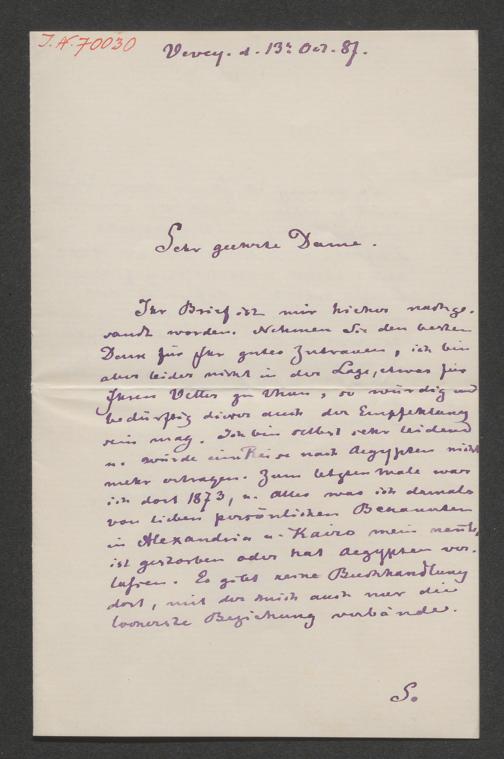 J.N. 70030
Vevey. d. 13t Oct. 87.
Sehr geehrte Dame.
Ihr Brief ist mir hieher nachge-
sandt worden. Nehmen Sie den besten
Dank für Ihr gutes Zutrauen, ich bin
aber leider nicht in der Lage, etwas für
Ihren Vetter zu thun, so würdig und
bedürftig dieser auch der Empfehlung
sein mag. Ich bin selbst sehr leidend
u. würde eine Reise nach Aegypten nicht
mehr ertragen. Zum letzten Male war
ich dort 1873, u. alles was ich damals
von lieben persönlichen Bekannten
in Alexandria u. Kairo mein nannte,
ist gestorben oder hat Aegypten ver-
lassen. Es gibt keine Buchhandlung
dort, mit der mich auch nur die
lockerste Beziehung verbände.
S.